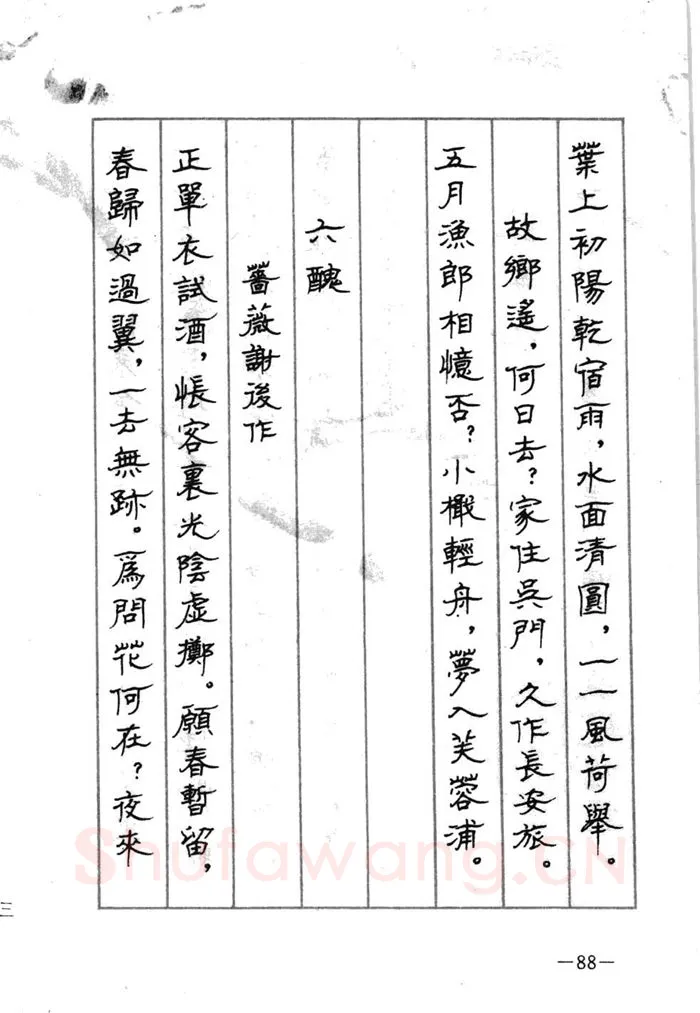 葉上初陽乾宿雨，水面清圓，一一風荷舉。
故鄉遙，何日去？家住吳門，久作長安旅。
五月漁郎相憶否？小檝輕舟，夢入芙蓉浦。
六醜
薔薇謝後作
正單衣試酒，悵客裏光陰虛擲。願春暫留，
春歸如過翼，一去無跡。爲問花何在？夜來
三
Shufawang.CN
—88—